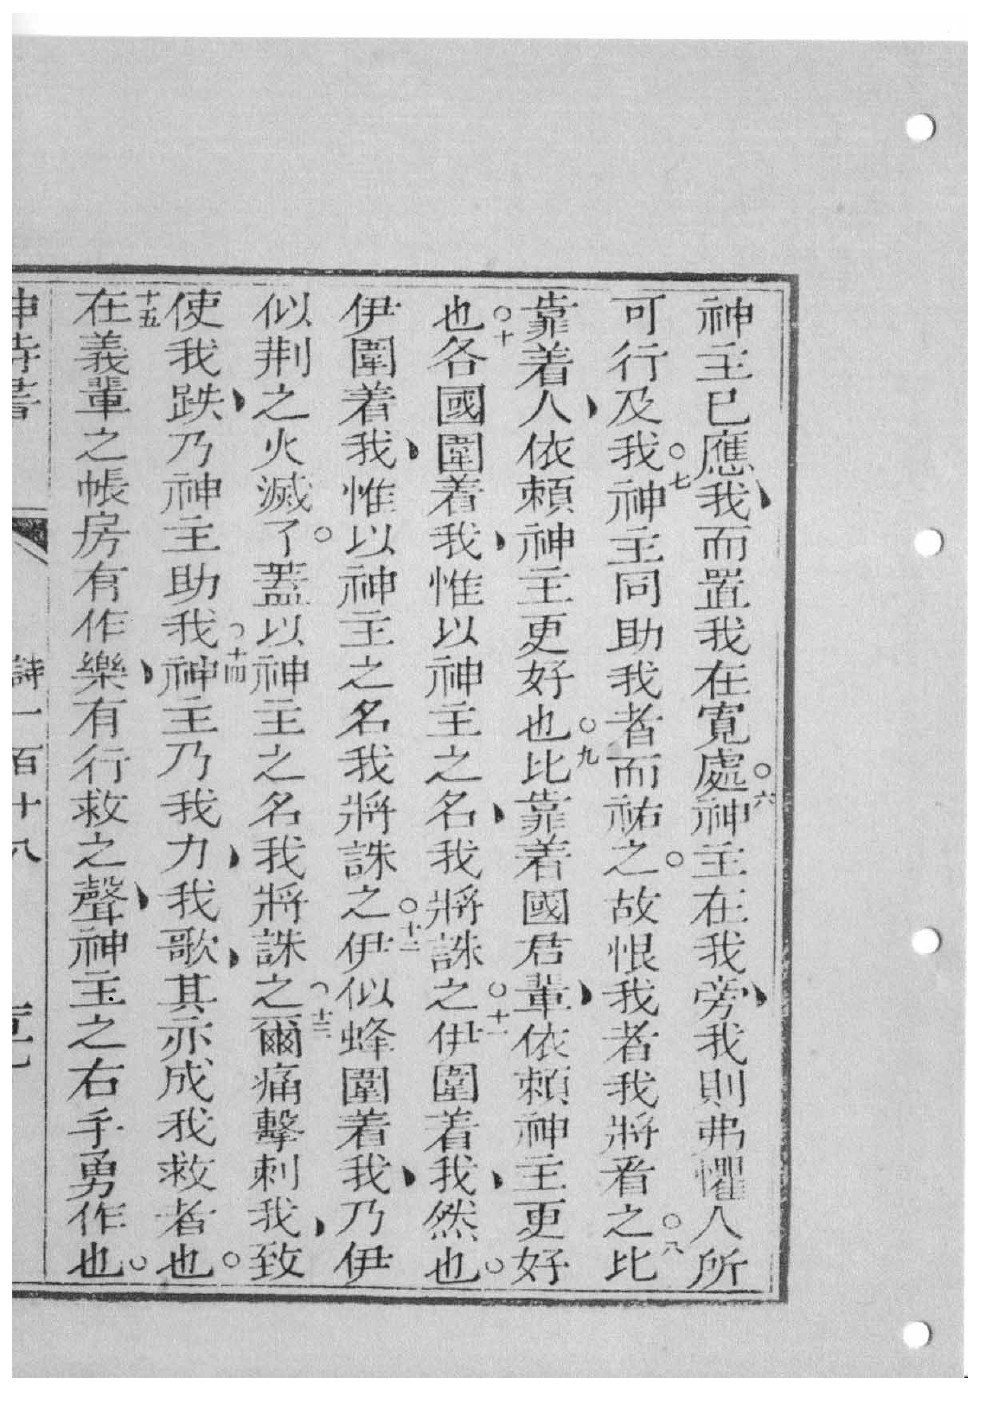 神主已應我、而置我在寬處○六神主在我旁、我則弗懼人所
可行及我○七神主同助我者而祐之○故恨我者我將看之○八比
靠着人、依賴神主更好也○九比靠着國君輩、依賴神主更好
也○十各國圍着我、惟以神主之名、我將誅之○十一伊圍着我、然也○
伊圍着我、惟以神主之名我將誅之○十二伊似蜂圍着我、乃伊
似荆之火滅了○蓋以神主之名我將誅之○十三爾痛擊刺我、致
使我跌、乃神主助我○十四神主乃我力、我歌、其亦成我救者也○
十五在義輩之帳房有作樂、有行救之聲、神主之右手勇作也○
神詩書 詩一百十八